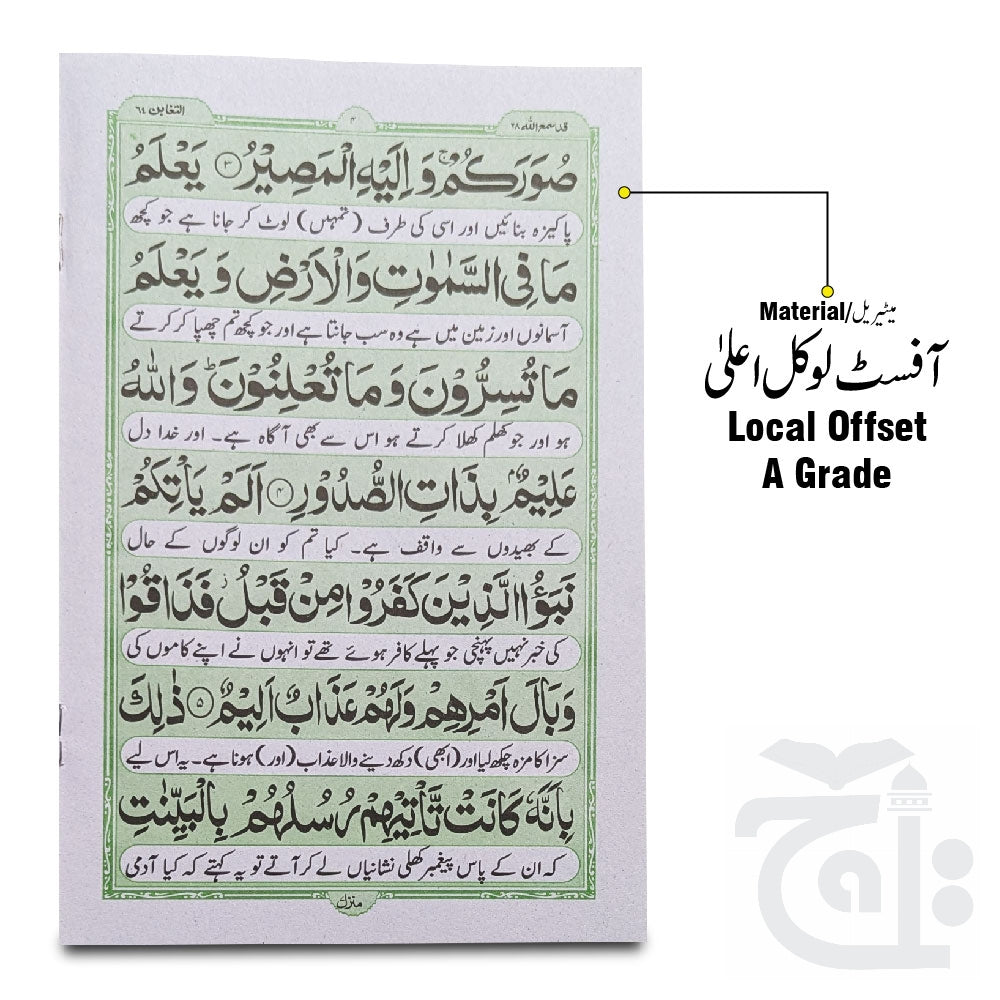 قد سمع الله ٢٨
٣
التغابن ٦٤
صُوَرَكُمْ ۚ وَ اِلَيْهِ الْمَصِيْرُ ۝٣ يَعْلَمُ
پاکیزہ بنائیں اور اسی کی طرف (تمہیں) لوٹ کر جانا ہے جو کچھ
مَا فِي السَّمٰوٰتِ وَالْاَرْضِ وَ يَعْلَمُ
آسمانوں اور زمین میں ہے وہ سب جانتا ہے اور جو کچھ تم چھپا کر کرتے
مَا تُسِرُّوْنَ وَ مَا تُعْلِنُوْنَ ؕ وَاللّٰهُ
ہو اور جو کھلم کھلا کرتے ہو اس سے بھی آگاہ ہے۔ اور خدا دل
عَلِيْمٌۢ بِذَاتِ الصُّدُوْرِ ۝٤ اَلَمْ يَاْتِكُمْ
کے بھیدوں سے واقف ہے۔ کیا تم کو ان لوگوں کے حال
نَبَؤُا الَّذِيْنَ كَفَرُوْا مِنْ قَبْلُ ؗ فَذَاقُوْا
کی خبر نہیں پہنچی جو پہلے کافر ہوئے تھے تو انہوں نے اپنے کاموں کی
وَبَالَ اَمْرِهِمْ وَلَهُمْ عَذَابٌ اَلِيْمٌ ۝٥ ذٰلِكَ
سزا کا مزہ چکھ لیا اور (ابھی) دکھ دینے والا عذاب (اور) ہونا ہے۔ یہ اس لیے
بِاَنَّهٗ كَانَتْ تَّاْتِيْهِمْ رُسُلُهُمْ بِالْبَيِّنٰتِ
کہ ان کے پاس پیغمبر کھلی نشانیاں لے کر آتے تو یہ کہتے کہ کیا آدمی
Material/میٹیریل
آفسٹ لوکل اعلیٰ
Local Offset
A Grade